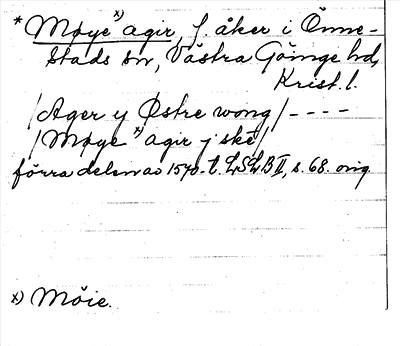 * Møye x) agir, f. åker i Önne-
stads sn, Västra Göinge hd,
Krist. l.
/Ager y Østre wong/----
/Møye x) agir j ske/
förra delen av 1570-t. LSLB II, s. 68. orig.
x) Möie.